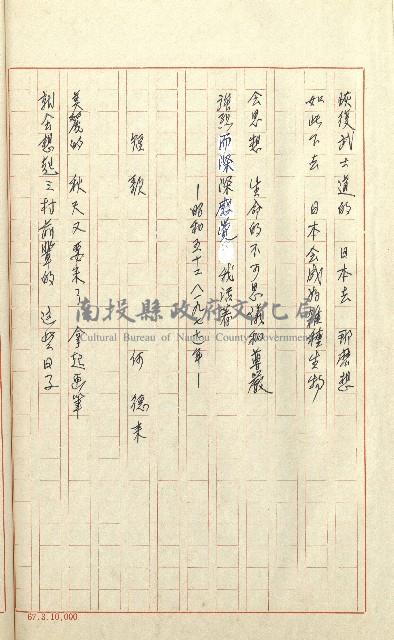 恢復武士道的 日本去 那麼想
如此下去 日本會成為雜種生物
会思想 生命的不可思議和尊嚴
強烈而深深感覺 我活著
—昭和五十二 八 一九七七年—
短歌 何德来
美麗的 秋天又要来了 拿起画筆
就会想起三村前輩的 這些日子
南投縣政府文化局
Cultural Bureau of Nantou County Government
67.3.10,000